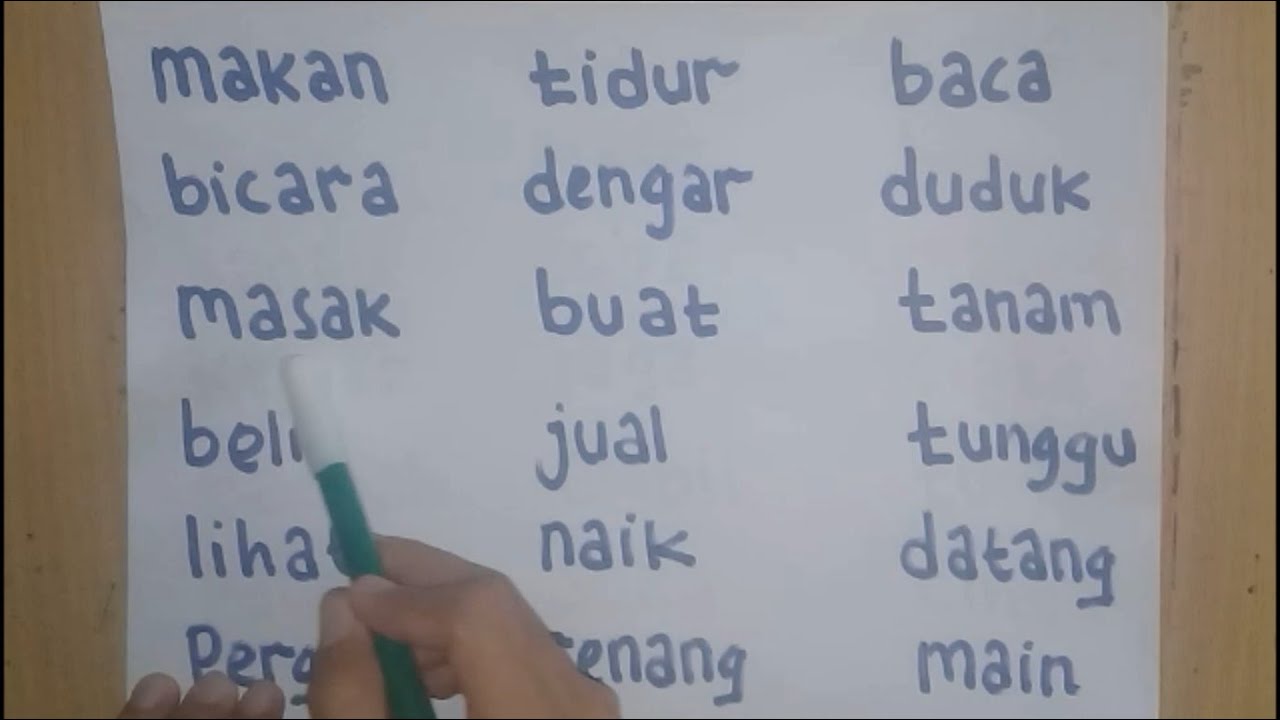 makan tidur baca
bicara dengar duduk
masak buat tanam
beli jual tunggu
lihat naik datang
main